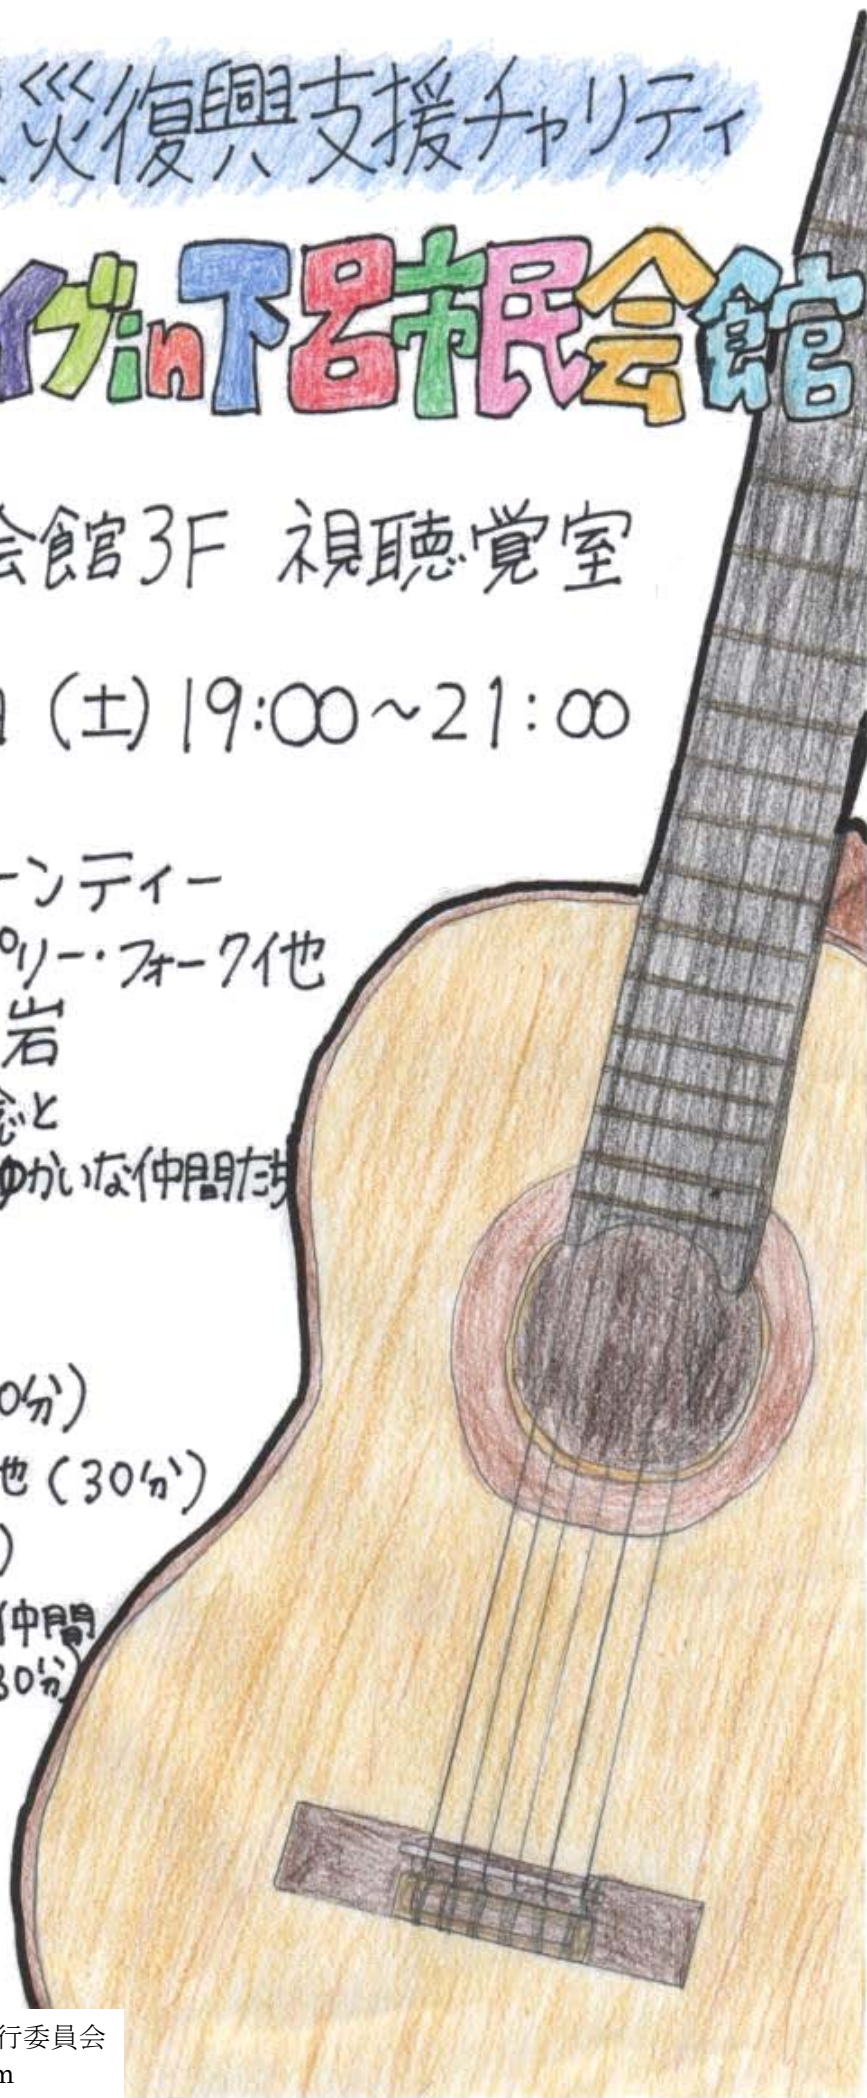 災復興支援チャリティ
イブin下呂市民会館
会館3F 視聴覚室
(土) 19:00~21:00
ーンティー
プリー・フォークイ他
岩
と
ゆかいな仲間たち
0分)
他(30分)
)
仲間
30分)
行委員会
m